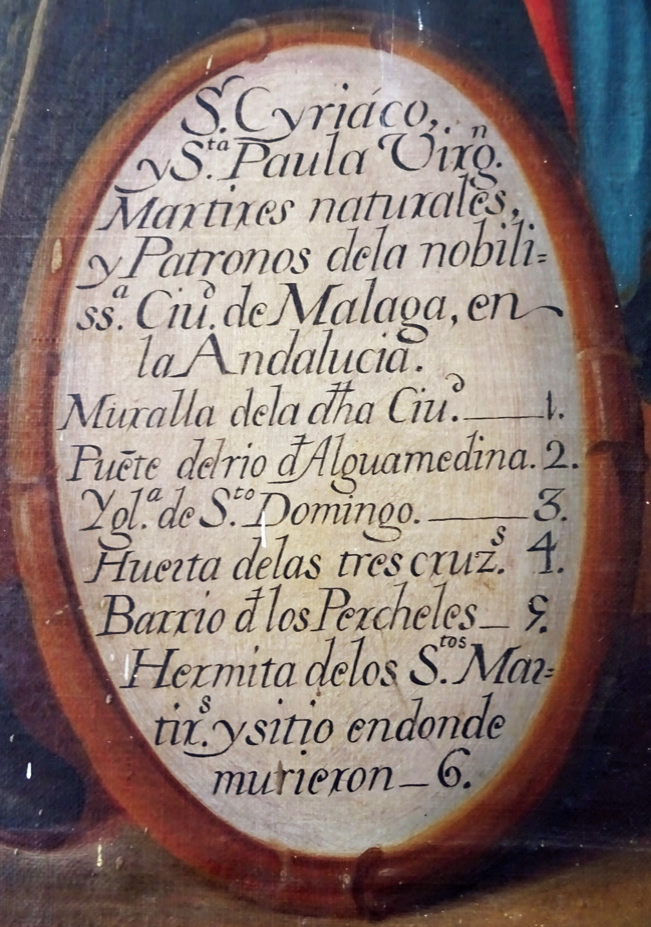 Sr. Cyriáco,
y Sta. Paula Virgn.
Martires naturales,
y Patronos dela nobili=
ssa. Ciud. de Malaga, en
la Andalucia.
Muralla dela dha Ciud. 1.
Puēte delrio đ Alguamedina. 2.
Ygla. de Sto. Domingo. 3.
Huerta delas tres cruzs. 4.
Barrio đ los Percheles 5.
Hermita delos Stos. Mar=
tirs. y sitio endonde
murieron 6.